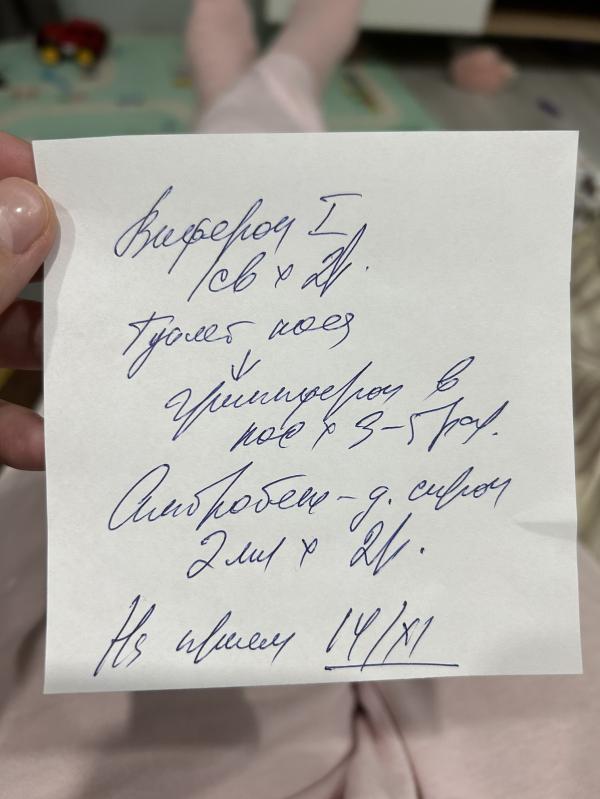 Виферон I
1св х 2р.
Туалет носа
↓
Гриппферон в
нос х 3-5 раз.
Амбробене - д. сироп
2 мл х 2р.
На прием 14/XI